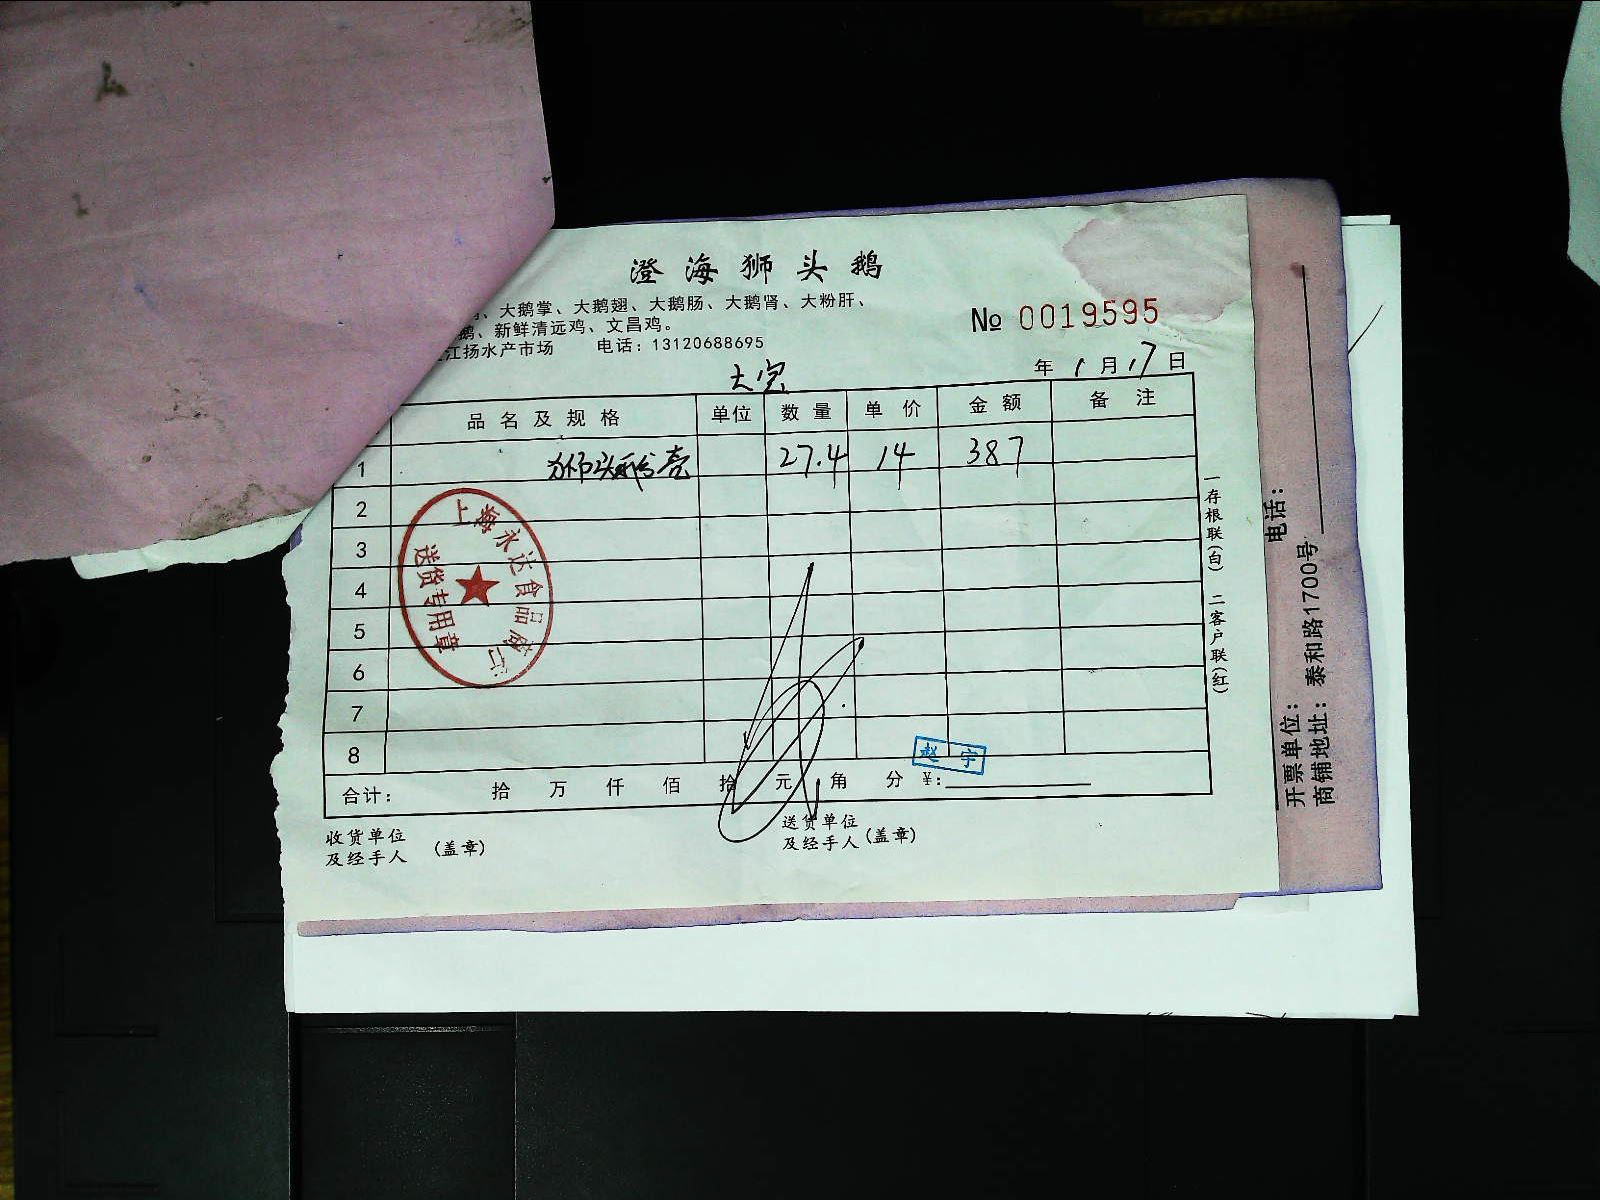 澄海狮头鹅
、大鹅掌、大鹅翅、大鹅肠、大鹅肾、大粉肝、
鹅、新鲜清远鸡、文昌鸡。
江扬水产市场 电话：13120688695
№ 0019595
年 1 月 17 日
品名及规格 单位 数量 单价 金额 备注
1 狮头鹅 27.4 14 387
2
3
4
5
6
7
8
合计： 拾 万 仟 佰 拾 元 角 分 ¥：
收货单位
及经手人 （盖章）
送货单位
及经手人（盖章）
上海永达食品商行
送货专用章
赵宇
一存根联（白） 二客户联（红）
电话：
开票单位：
商铺地址：泰和路1700号